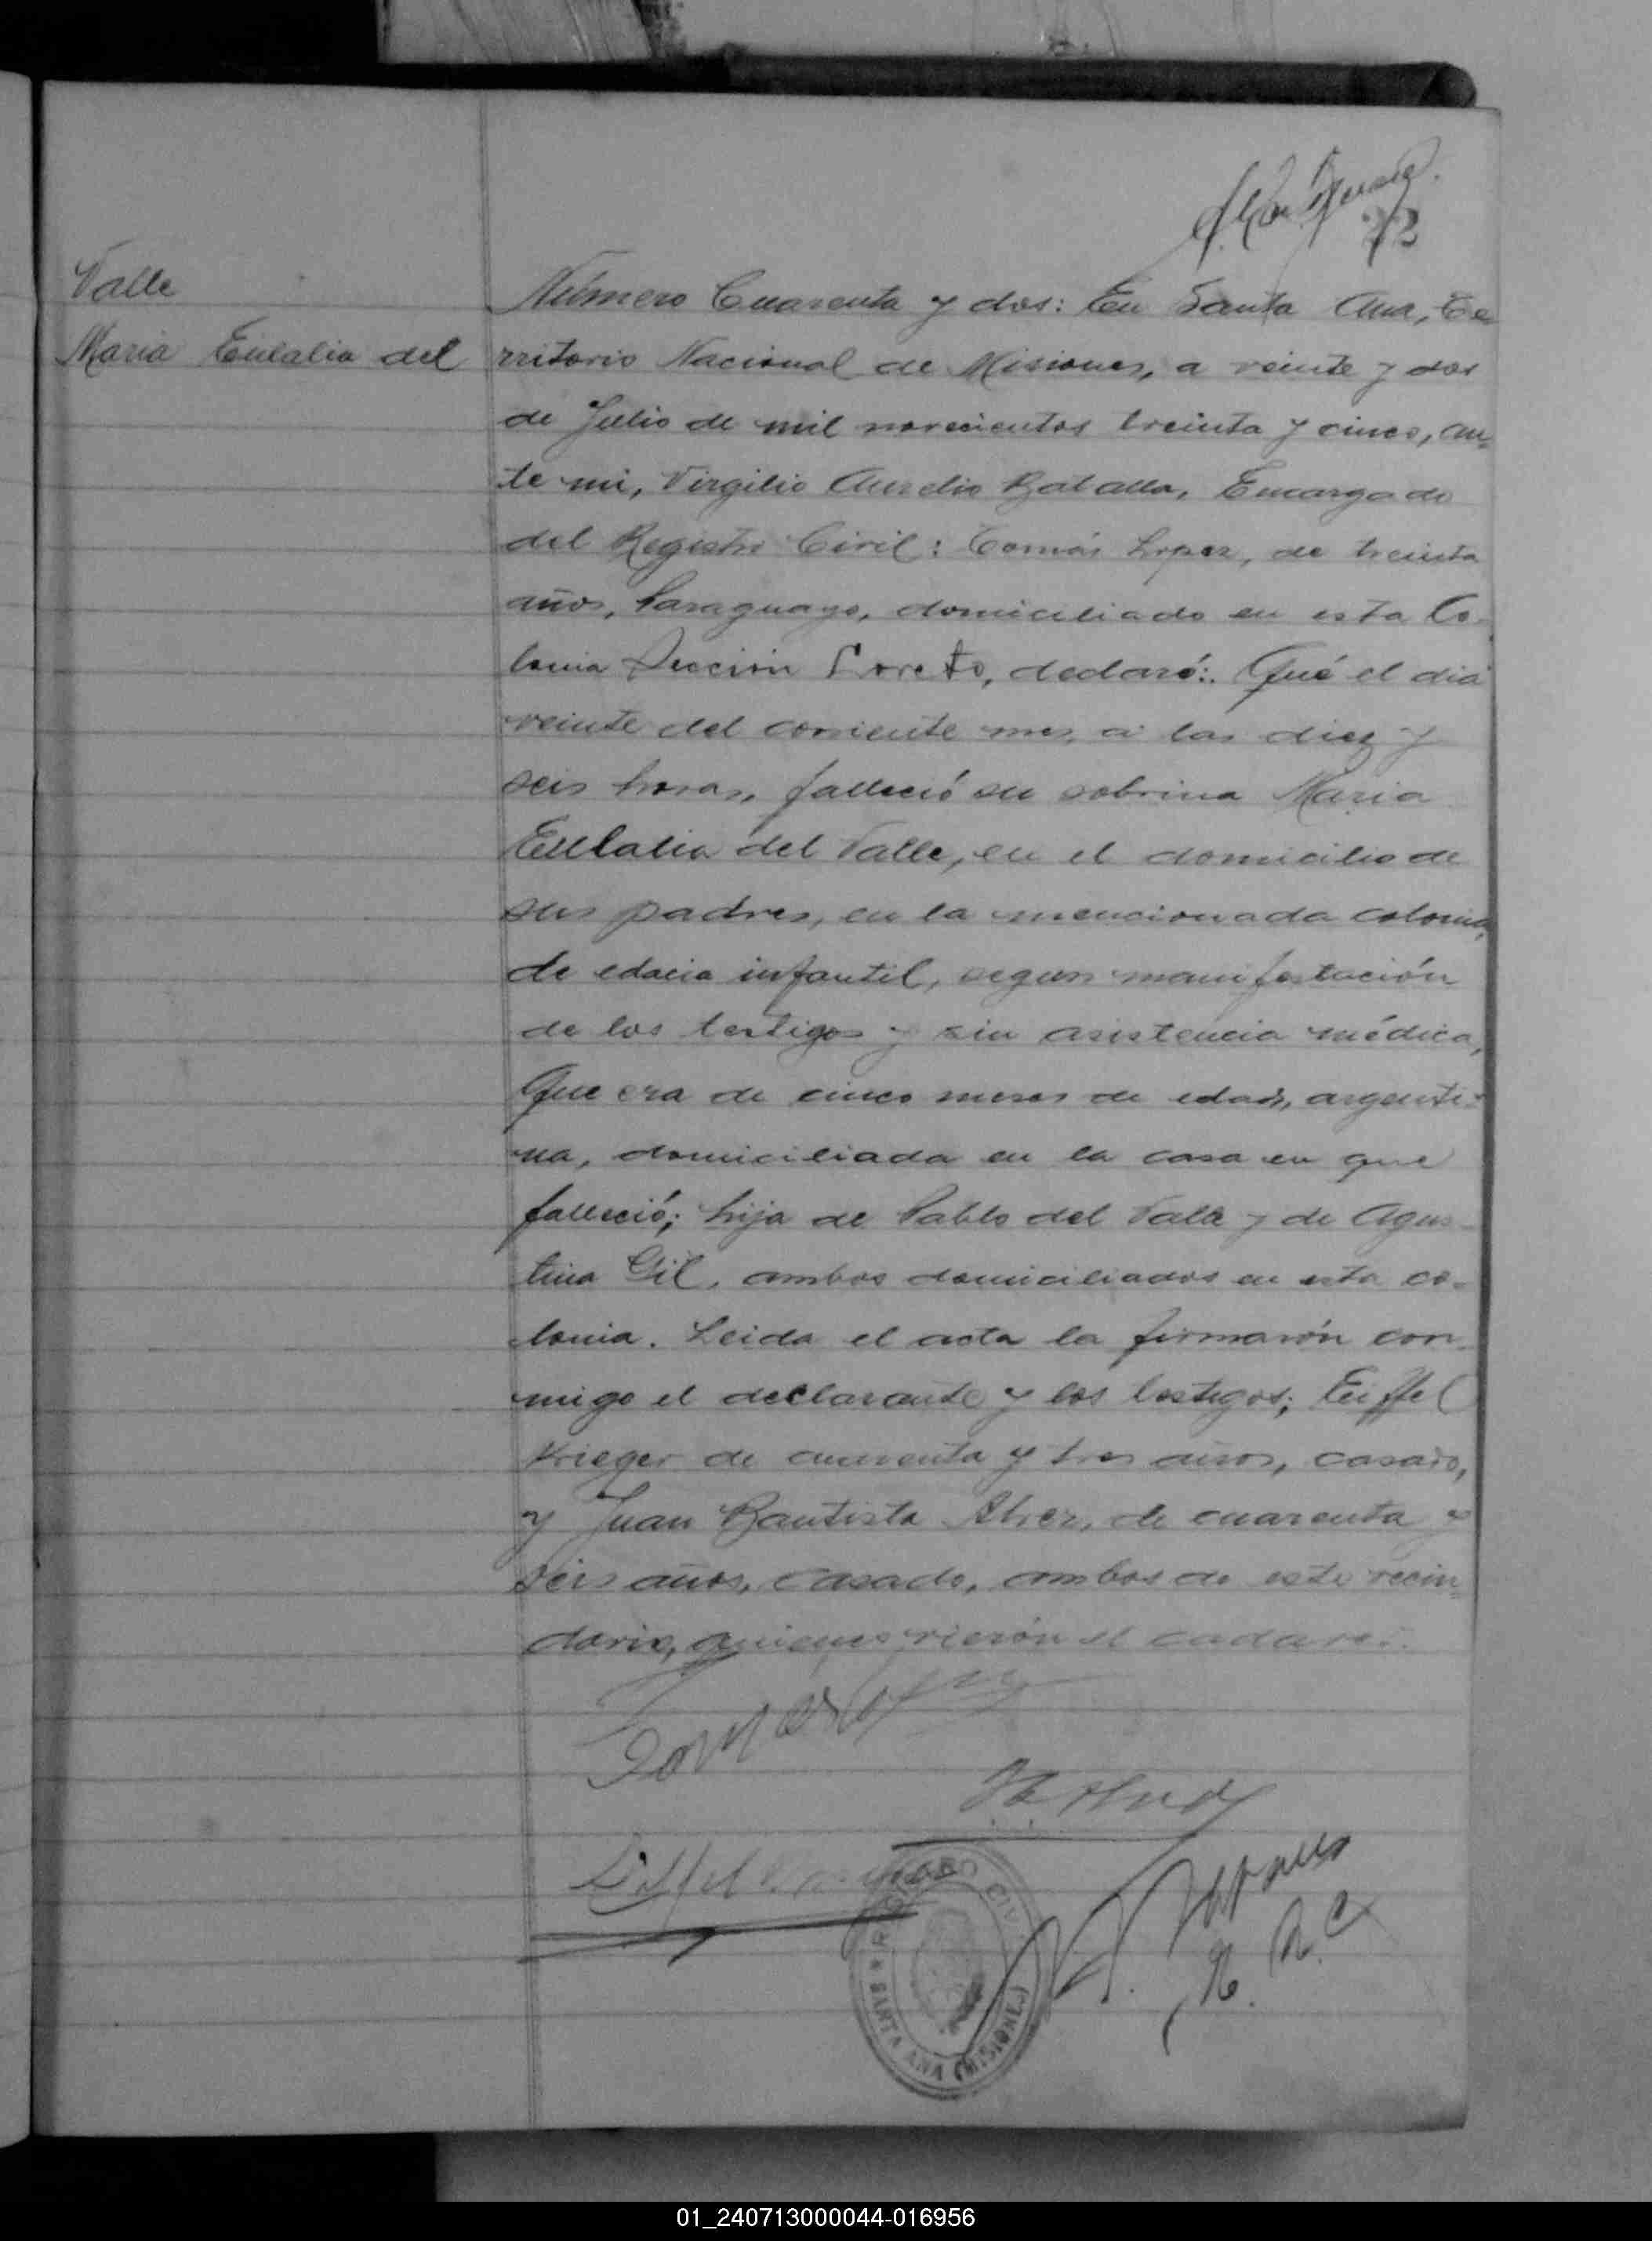 22
Valle
Maria Eulalia del
Número Cuarenta y dos: En Santa Ana, Te
rritorio Nacional de Misiones, a veinte y dos
de Julio de mil novecientos treinta y cinco, an-
te mi, Virgilio Aurelio Batalla, Encargado
del Registro Civil: Tomás Lopez, de treinta
años, Paraguayo, domiciliado en esta Co-
lonia Sección Loreto, declaró: Qué el dia
veinte del corriente mes, a las diez y
seis horas, falleció su sobrina Maria
Eulalia del Valle, en el domicilio de
sus padres, en la mencionada colonia,
de infantil, segun manifestación
de los testigos y sin asistencia médica,
Que era de cinco meses de edad, argenti-
na, domiciliada en la casa en que
falleció; hija de Pablo del Valle y de Agus-
tina Gil, ambos domiciliados en esta co-
lonia. Leida el acta la firmarón con-
migo el declarante y los testigos; Eiffel
Krieger de cuarenta y tres años, casado,
y Juan Bautista Alvez, de cuarenta y
seis años, casado, ambos de este vecin-
dario, quienes vierón el cadaver.
Tomas Lopez
REGISTRO CIVIL
SANTA ANA (MISIONES)
E. R. C.
01_240713000044-016956